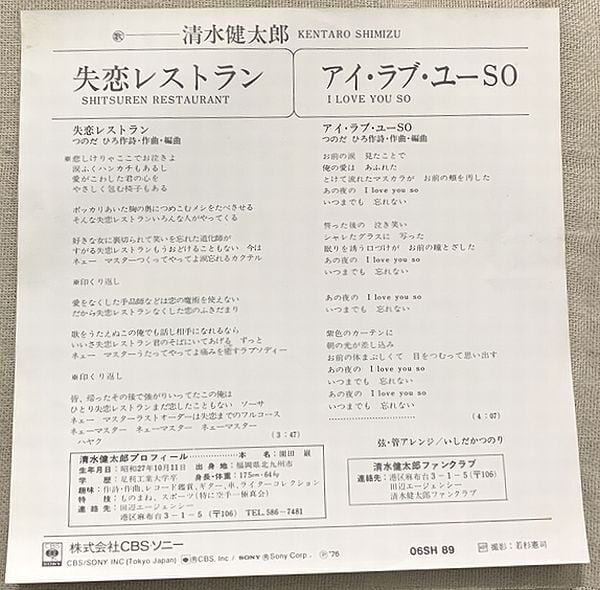 歌 清水健太郎 KENTARO SHIMIZU
失恋レストラン
SHITSUREN RESTAURANT
アイ・ラブ・ユーSO
I LOVE YOU SO
失恋レストラン
つのだ ひろ作詩・作曲・編曲
※悲しけりゃここでお泣きよ
涙ふくハンカチもあるし
愛がこわした君の心を
やさしく包む椅子もある
ポッカリあいた胸の奥につめこむメシをたべさせる
そんな失恋レストランいろんな人がやってくる
好きな女に裏切られて笑いを忘れた道化師が
すがる失恋レストランもうおどけることもない 今は
ネェー マスターつくってやってよ涙忘れるカクテル
※印くり返し
愛をなくした手品師などは恋の魔術を使えない
だから失恋レストランなくした恋のふきだまり
歌をうたえぬこの俺でも話し相手になれるなら
いいさ失恋レストラン君のそばにいてあげる ずっと
ネェー マスターうたってやってよ痛みを癒すラプソディー
※印くり返し
皆、帰ったその後で強がりいってたこの俺は
ひとり失恋レストランまだ恋したこともない ソーサ
ネェー マスターラストオーダーは失恋までのフルコース
ネェーマスター ネェーマスター ネェーマスター
ハヤク
(3:47)
アイ・ラブ・ユーSO
つのだ ひろ作詩・作曲・編曲
お前の涙 見たことで
俺の愛は あふれた
とけて流れたマスカラが お前の頬を汚した
あの夜の I love you so
いつまでも 忘れない
誓った後の 泣き笑い
シャレたグラスに 写った
眠りを誘う口づけが お前の瞳とざした
あの夜の I love you so
いつまでも 忘れない
あの夜の I love you so
いつまでも 忘れない
紫色のカーテンに
朝の光が差し込み
お前の体まぶしくて 目をつむって思い出す
あの夜の I love you so
いつまでも 忘れない
あの夜の I love you so
いつまでも 忘れない
(4:07)
弦・管アレンジ/いしだかつのり
清水健太郎プロフィール 本名:園田 巌
生年月日:昭和27年10月11日 出身地:福岡県北九州市
学歴:足利工業大学卒 身長・体重:175cm・64㎏
趣味:作詩・作曲、レコード鑑賞、ギター、車、ライターコレクション
特技:ものまね、スポーツ(特に空手―極真会)
連絡先:田辺エージェンシー
港区麻布台3-1-5(〒106) TEL.586-7481
清水健太郎ファンクラブ
連絡先:港区麻布台3-1-5(〒106)
田辺エージェンシー
清水健太郎ファンクラブ
CBS SONY 株式会社CBSソニー
CBS/SONY INC(Tokyo Japan) ®CBS, Inc / SONY ®Sony Corp. ℗'76
06SH 89
撮影:若杉憲司